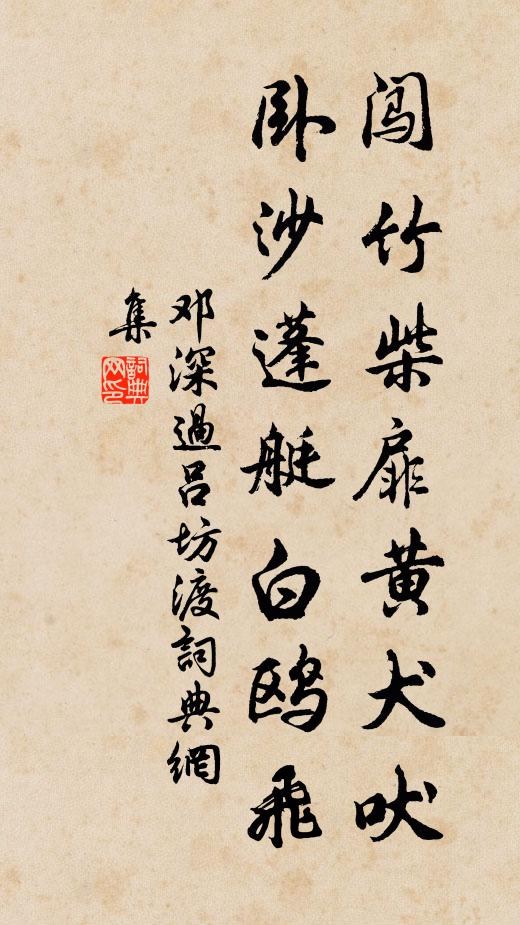 闯竹柴扉黄犬吠
卧沙蓬艇白鸥飛
邓深過吕坊渡詞典網
集
詞典
网印